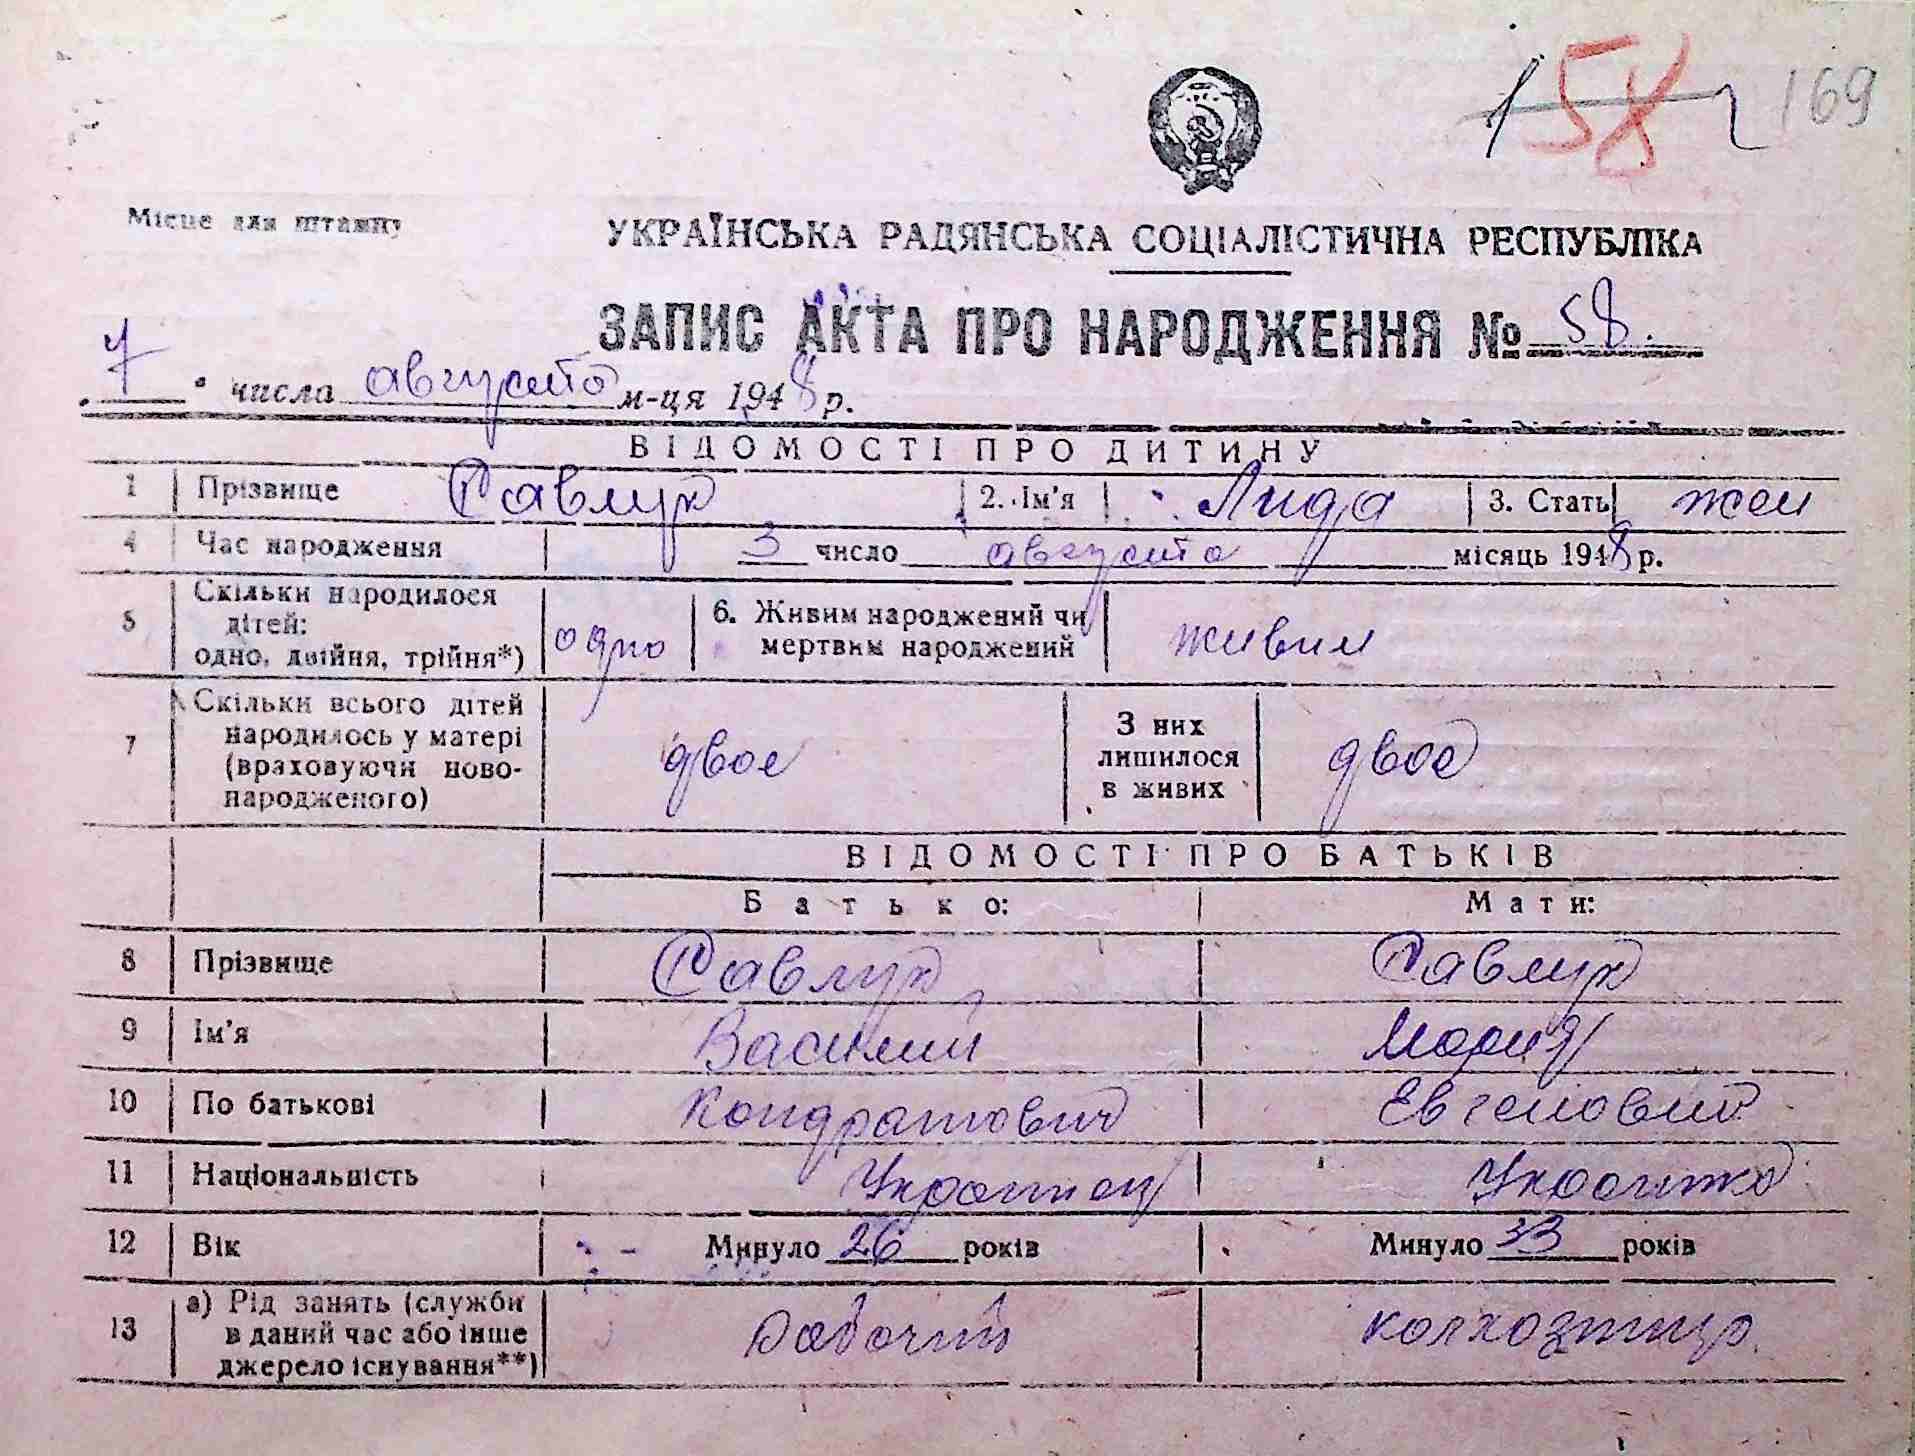 158 169
Місце для штампу
УКРАЇНСЬКА РАДЯНСЬКА СОЦІАЛІСТИЧНА РЕСПУБЛІКА
ЗАПИС АКТА ПРО НАРОДЖЕННЯ № 58.
7 числа августа м-ця 1948 р.
ВІДОМОСТІ ПРО ДИТИНУ
1 Прізвище Савлук 2. Ім'я Лида 3. Стать жен
4 Час народження 3 число августа місяць 1948 р.
5 Скільки народилося дітей: одно, двійня, трійня*) одно 6. Живим народжений чи мертвим народжений живим
7 Скільки всього дітей народилось у матері (враховуючи новонародженого) двое З них лишилося в живих двое
ВІДОМОСТІ ПРО БАТЬКІВ
Батько: Мати:
8 Прізвище Савлук Савлук
9 Ім'я Василий Мария
10 По батькові Кондратович Евгеновна
11 Національність Украинец Украинка
12 Вік Минуло 26 років Минуло 33 років
13 а) Рід занять (служби в даний час або інше джерело існування**) Рабочий колхозница